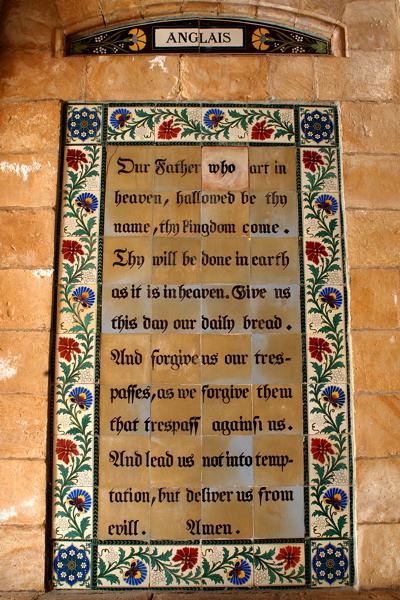 ANGLAIS
Our Father who art in
heaven, hallowed be thy
name, thy kingdom come.
Thy will be done in earth
as it is in heaven. Give us
this day our daily bread.
And forgive us our tres-
passes, as we forgive them
that trespass against us.
And lead us not into temp-
tation, but deliver us from
evill. Amen.